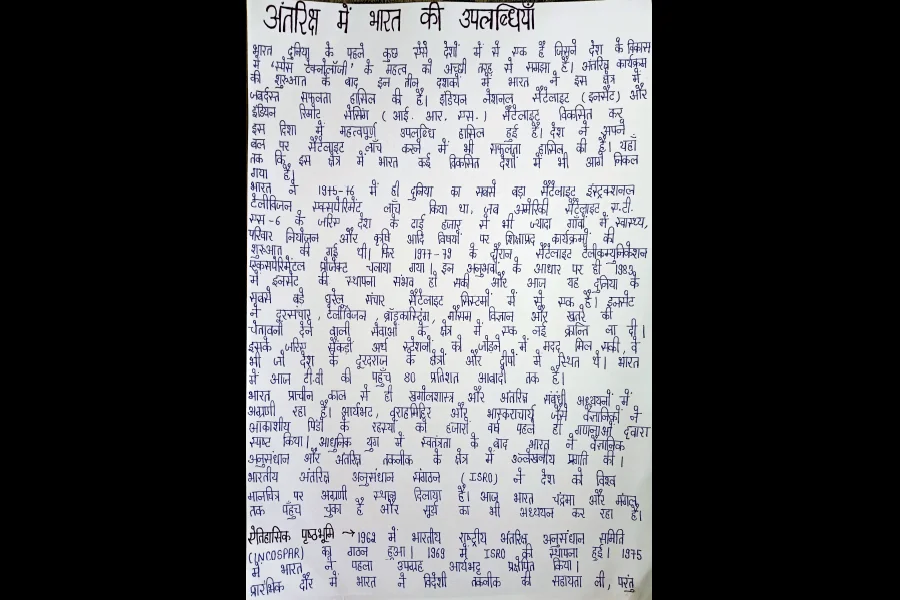 अंतरिक्ष में भारत की उपलब्धियाँ
भारत दुनिया के पहले कुछ ऐसे देशों में से एक है जिसने देश के विकास
में 'स्पेस टेक्नोलॉजी' के महत्व को अच्छी तरह से समझा है। अंतरिक्ष कार्यक्रम
की शुरुआत के बाद इन तीन दशकों में भारत ने इस क्षेत्र में
जबर्दस्त सफलता हासिल की है। इंडियन नेशनल सैटेलाइट (इनसैट) और
इंडियन रिमोट सेंसिंग (आई. आर. एस.) सैटेलाइट विकसित कर
इस दिशा में महत्वपूर्ण उपलब्धि हासिल हुई है। देश ने अपने
बल पर सैटेलाइट लाँच करने में भी सफलता हासिल की है। यहाँ
तक कि इस क्षेत्र में भारत कई विकसित देशों में भी आगे निकल
गया है।
भारत ने 1975-76 में ही दुनिया का सबसे बड़ा सैटेलाइट इंस्ट्रक्शनल
टेलीविजन एक्सपेरिमेंट लाँच किया था, जब अमेरिकी सैटेलाइट ए.टी.
एस-6 के जरिए देश के ढाई हजार से भी ज्यादा गाँवों में स्वास्थ्य,
परिवार नियोजन और कृषि आदि विषयों पर शिक्षाप्रद कार्यक्रमों की
शुरुआत की गई थी। फिर 1977-79 के दौरान सैटेलाइट टेलीकम्युनिकेशन
एक्सपेरिमेंटल प्रोजेक्ट चलाया गया। इन अनुभवों के आधार पर ही 1983
में इनसैट की स्थापना संभव हो सकी और आज यह दुनिया के
सबसे बड़े घरेलू संचार सैटेलाइट सिस्टमों में से एक है। इनसैट
ने दूरसंचार, टेलीविजन, ब्रॉडकास्टिंग, मौसम विज्ञान और खतरे की
चेतावनी देने वाली सेवाओं के क्षेत्र में एक नई क्रान्ति ला दी।
इसके जरिए सैकड़ों अर्थ स्टेशनों को जोड़ने में मदद मिल सकी, वे
भी जो देश के दूरदराज के क्षेत्रों और द्वीपों में स्थित थे। भारत
में आज टी.वी की पहुँच 80 प्रतिशत आबादी तक है।
भारत प्राचीन काल से ही खगोलशास्त्र और अंतरिक्ष संबंधी अध्ययनों में
अग्रणी रहा है। आर्यभट, वराहमिहिर और भास्कराचार्य जैसे वैज्ञानिकों ने
आकाशीय पिंडों के रहस्यों को हजारों वर्ष पहले ही गणनाओं द्वारा
स्पष्ट किया। आधुनिक युग में स्वतंत्रता के बाद भारत ने वैज्ञानिक
अनुसंधान और अंतरिक्ष तकनीक के क्षेत्र में उल्लेखनीय प्रगति की।
भारतीय अंतरिक्ष अनुसंधान संगठन (ISRO) ने देश को विश्व
मानचित्र पर अग्रणी स्थान दिलाया है। आज भारत चंद्रमा और मंगल
तक पहुँच चुका है और सूर्य का भी अध्ययन कर रहा है।
ऐतिहासिक पृष्ठभूमि → 1962 में भारतीय राष्ट्रीय अंतरिक्ष अनुसंधान समिति
(INCOSPAR) का गठन हुआ। 1969 में ISRO की स्थापना हुई। 1975
में भारत ने पहला उपग्रह आर्यभट्ट प्रक्षेपित किया।
प्रारंभिक दौर में भारत ने विदेशी तकनीक की सहायता ली, परंतु